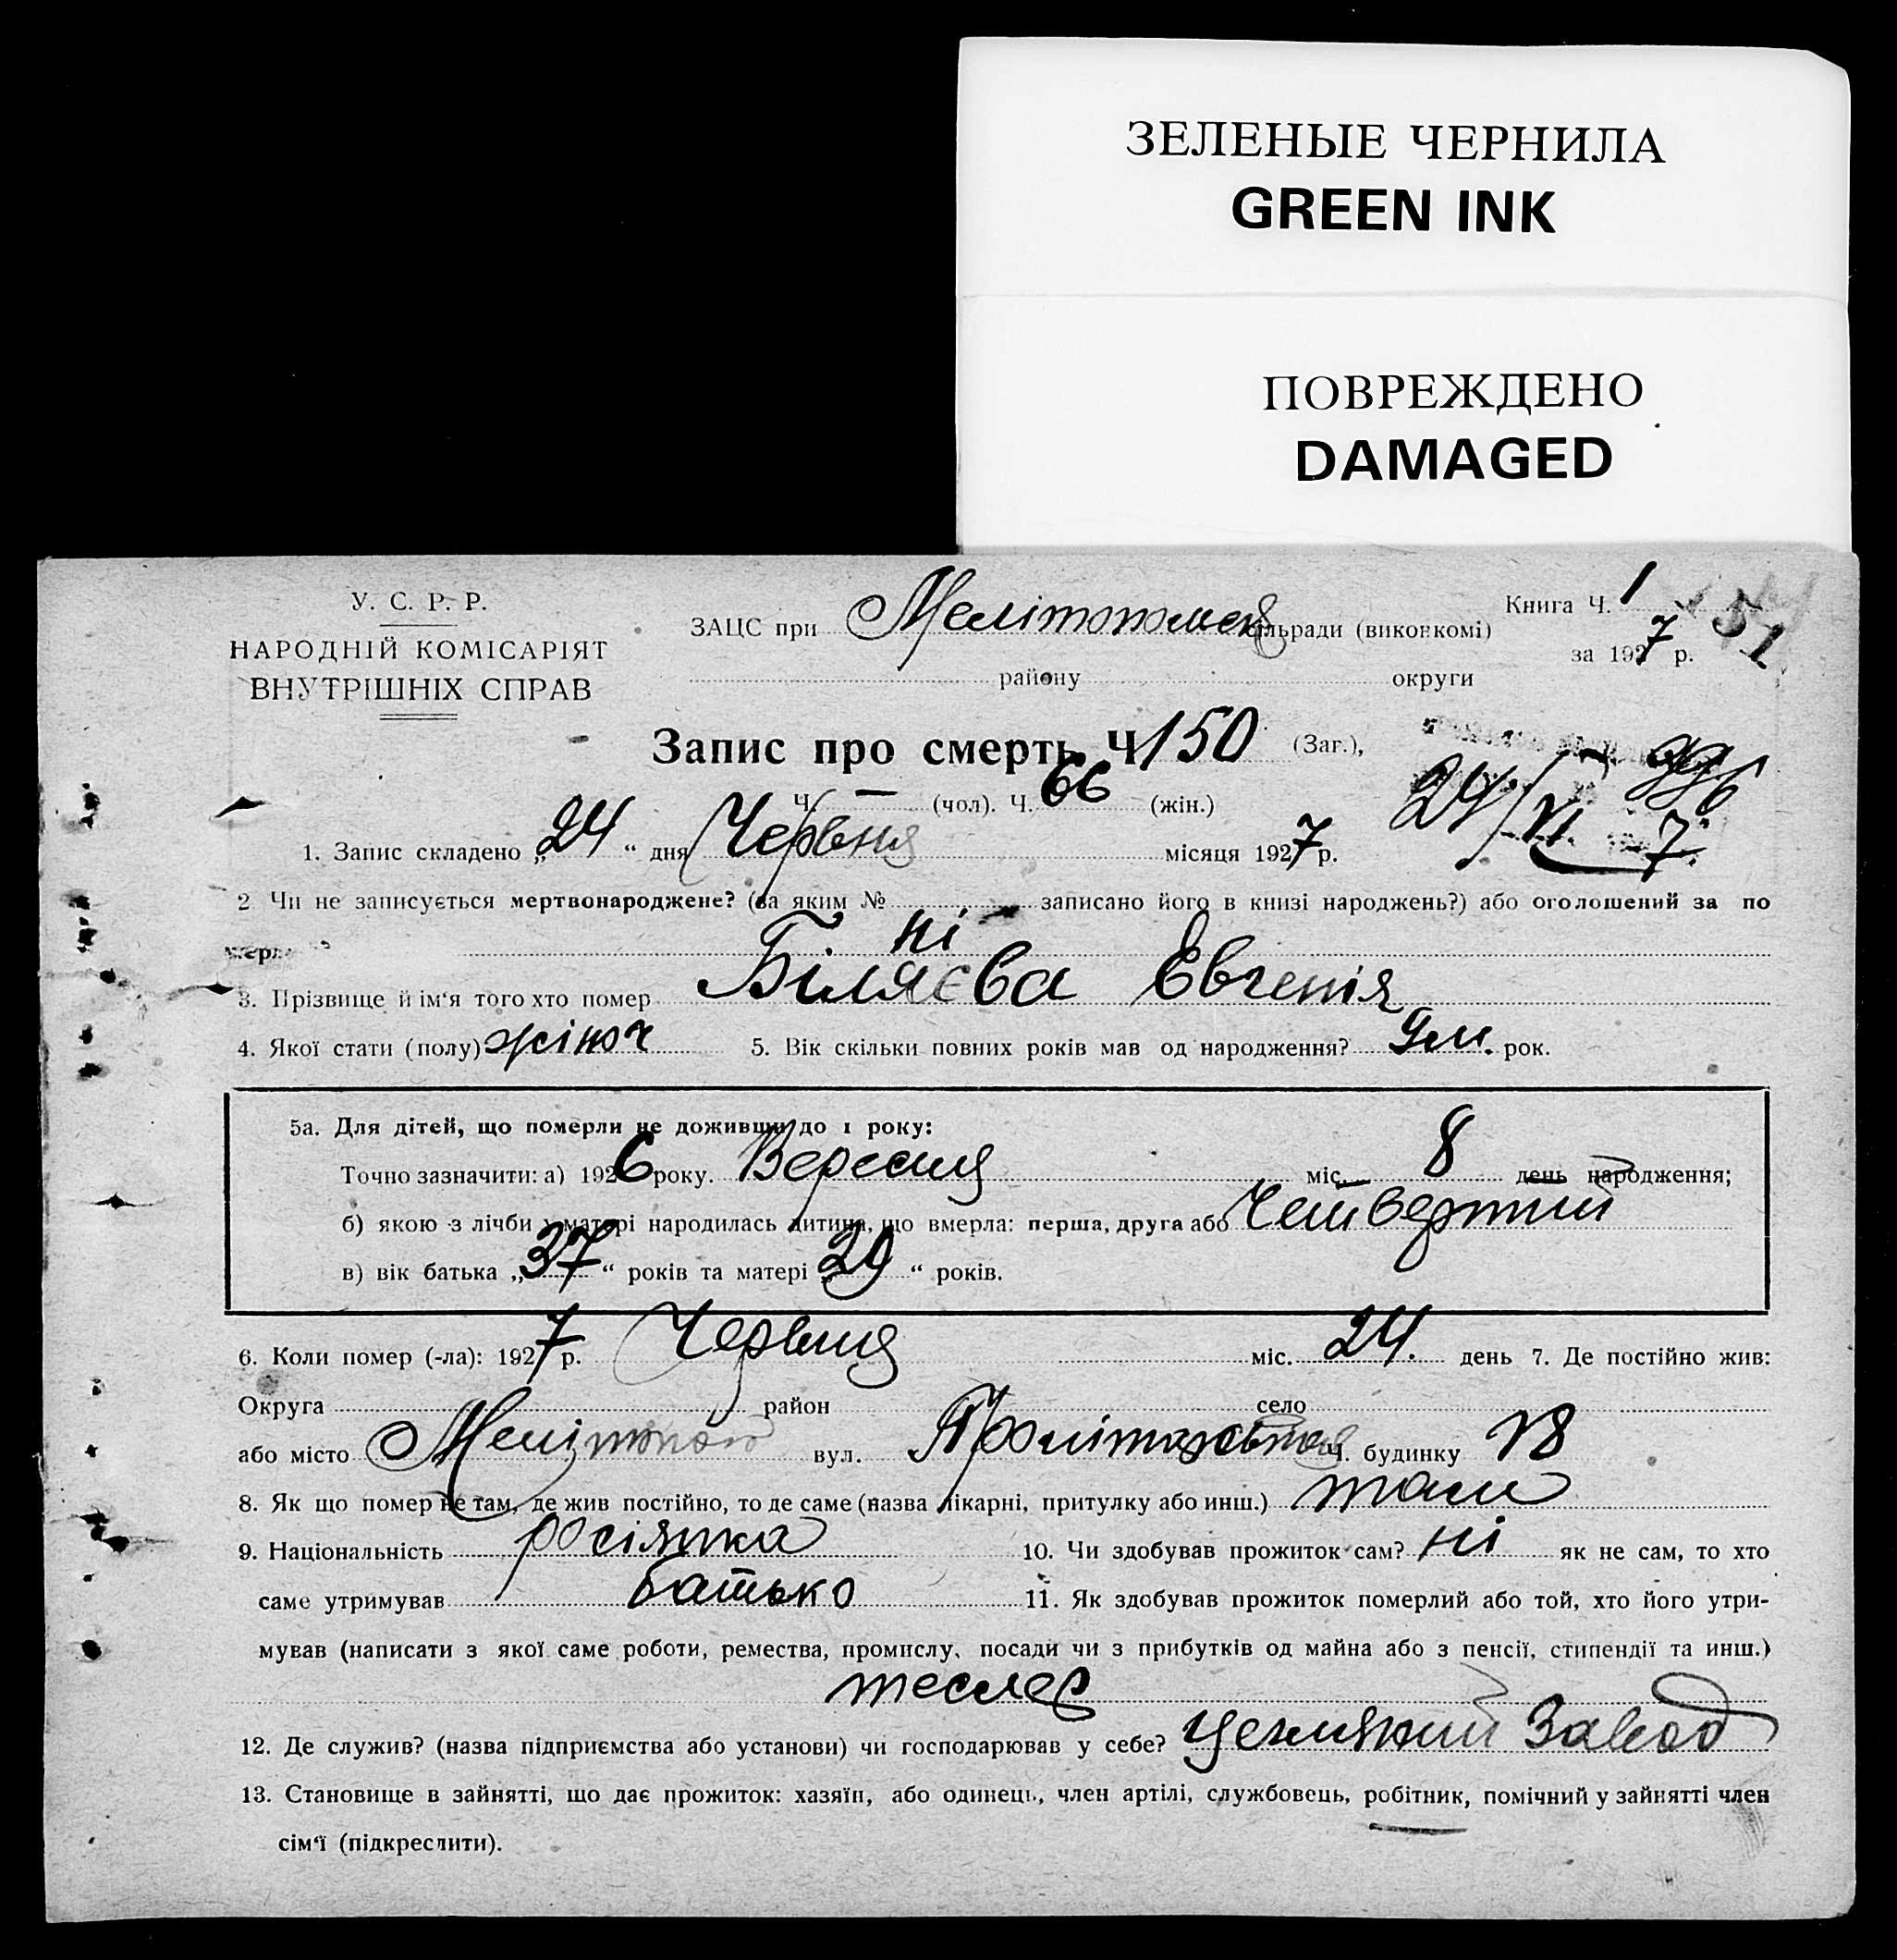 ЗЕЛЕНЫЕ ЧЕРНИЛА
GREEN INK
ПОВРЕЖДЕНО
DAMAGED
У. С. Р. Р.
НАРОДНІЙ КОМІСАРІЯТ
ВНУТРІШНІХ СПРАВ
ЗАЦС при Мелітопольск сільради (виконкомі)
району округи
Книга Ч. 1
за 1927 р.
51
Запис про смерть Ч 150 (Заг.),
Ч. — (чол). Ч. 66 (жін.)
24/VI 7
1. Запис складено „24“ дня Червня місяця 1927 р.
2 Чи не записується мертвонароджене? (за яким № записано його в книзі народжень?) або оголошений за по
мерл ні
3. Прізвище й ім'я того хто помер Біляєва Евгенія
4. Якої стати (полу) жіноч 5. Вік скільки повних років мав од народження? 9 м. рок.
5а. Для дітей, що померли не доживши до 1 року:
Точно зазначити: а) 1926 року. Вересня міс. 8 день народження;
б) якою з лічби у матері народилась дитина, що вмерла: перша, друга або Четвертий
в) вік батька „37“ років та матері „29“ років.
6. Коли помер (-ла): 1927 р. Червня міс. 24. день 7. Де постійно жив:
Округа район село
або місто Мелітополь вул. Пролітарська Ч. будинку 18
8. Як що помер не там, де жив постійно, то де саме (назва лікарні, притулку або инш.) там
9. Національність росіянка 10. Чи здобував прожиток сам? ні як не сам, то хто
саме утримував батько 11. Як здобував прожиток померлий або той, хто його утри-
мував (написати з якої саме роботи, ремества, промислу, посади чи з прибутків од майна або з пенсії, стипендії та инш.)
тесляр
12. Де служив? (назва підприємства або установи) чи господарював у себе? Завод
13. Становище в зайнятті, що дає прожиток: хазяїн, або одинець, член артілі, службовець, робітник, помічний у зайнятті член
сім'ї (підкреслити).